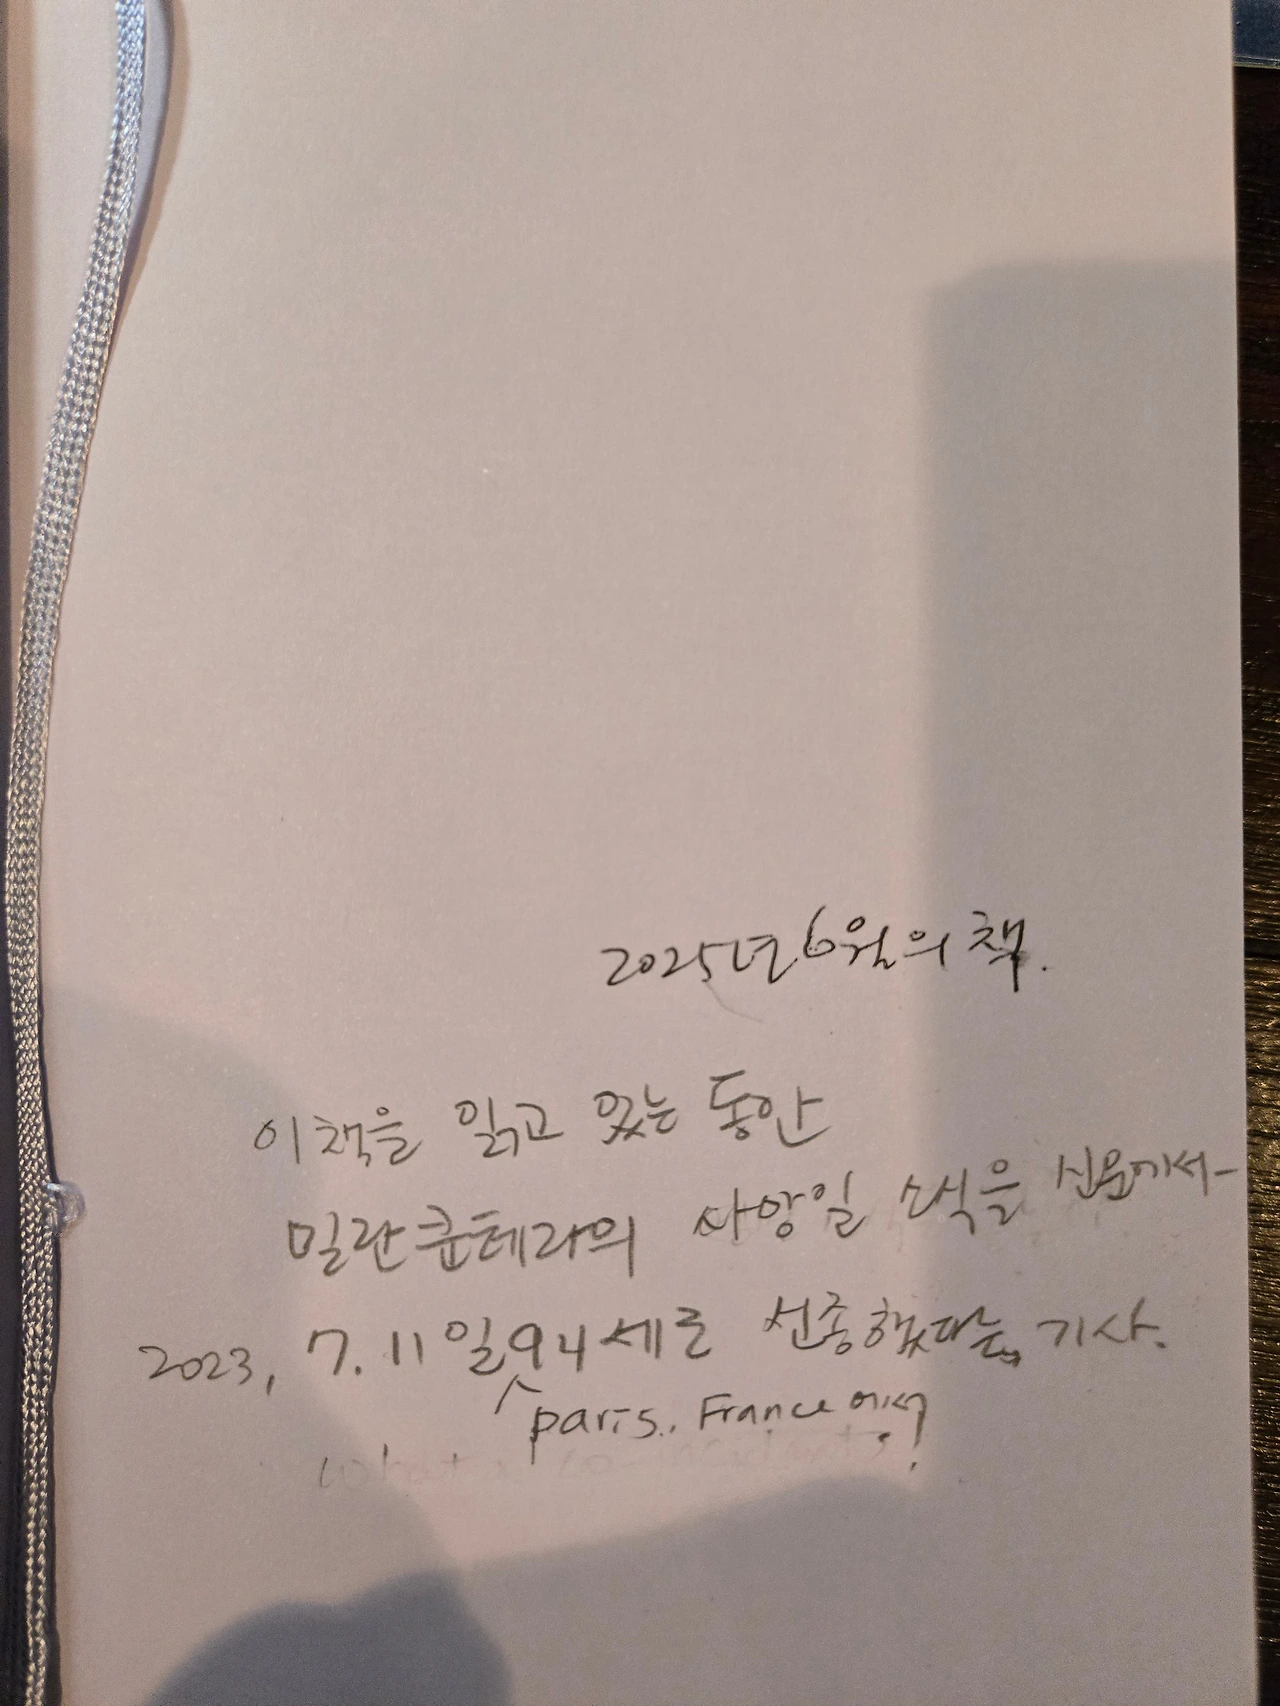 2025년 6월의 책.
이 책을 읽고 있는 동안
밀란쿤테라의 사망일 소식을 신문에서-
2023, 7. 11일 94세로 선종했다는 기사.
paris. France에서
What a!